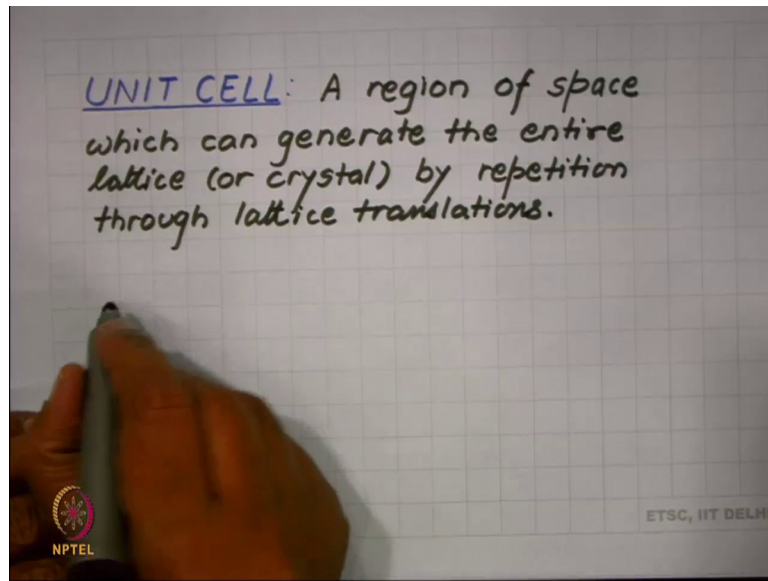 UNIT CELL: A region of space
which can generate the entire
lattice (or crystal) by repetition
through lattice translations.
ETSC, IIT DELH
NPTEL